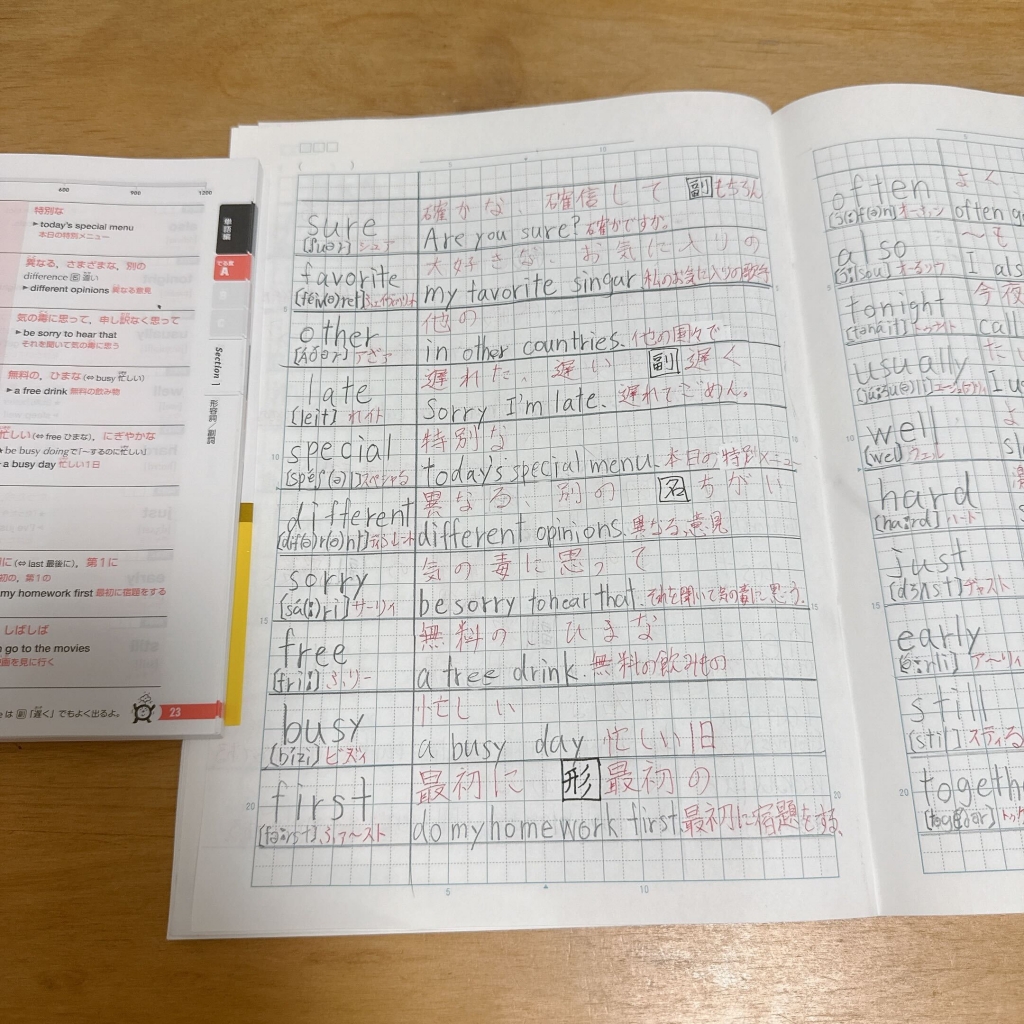 600 900 1200
特別な
▸ today's special menu
本日の特別メニュー
異なる、さまざまな、別の
difference 名 違い
▸ different opinions 異なる意見
気の毒に思って、申し訳なく思って
▸ be sorry to hear that
それを聞いて気の毒に思う
無料の、ひまな (⇔ busy 忙しい)
▸ a free drink 無料の飲み物
忙しい (⇔ free ひまな)、にぎやかな
be busy doingで「~するのに忙しい」
a busy day 忙しい1日
に (⇔ last 最後に)、第1に
初の、第1の
my homework first 最初に宿題をする
しばしば
go to the movies
映画を見に行く
は 副 「遅く」でもよく出るよ。
23
単語編
でる度
A
Section 1
形容詞/副詞
5 10
sure 確かな、確信して 副 もちろん
[ʃuər] シュア Are you sure? 確かですか。
favorite 大好きな、お気に入りの
my favorite singar 私のお気に入りの歌手
other 他の
in other countries. 他の国々で
late 遅れた、遅い 副 遅く
[leit] れイト Sorry I'm late. 遅れてごめん。
special 特別な
スペシャる today's special menu. 本日の特別メニュー
different 異なる、別の 名 ちがい
different opinions. 異なる、意見
sorry 気の毒に思って
サーリィ be sorry to hear that. それを聞いて気の毒に思う。
free 無料の、ひまな
[fri:] ふリー a free drink. 無料の飲みもの
busy 忙しい
[bízi] ビズィ a busy day 忙しい1日
first 最初に 形 最初の
[fə:rst] ふァ～スト do my homework first 最初に宿題をする、
5 10
often よく
オーふン often g
also ～も
オーるソウ I als
tonight 今夜
[tənáit] トゥナイト call
usually たい
I us
well よ
[wel] ウェル sl
hard
[hɑ:rd] ハード
just
[dʒʌst] ヂャスト
early
[ə́:rli] ア～りィ
still
[stil] スティる
togeth